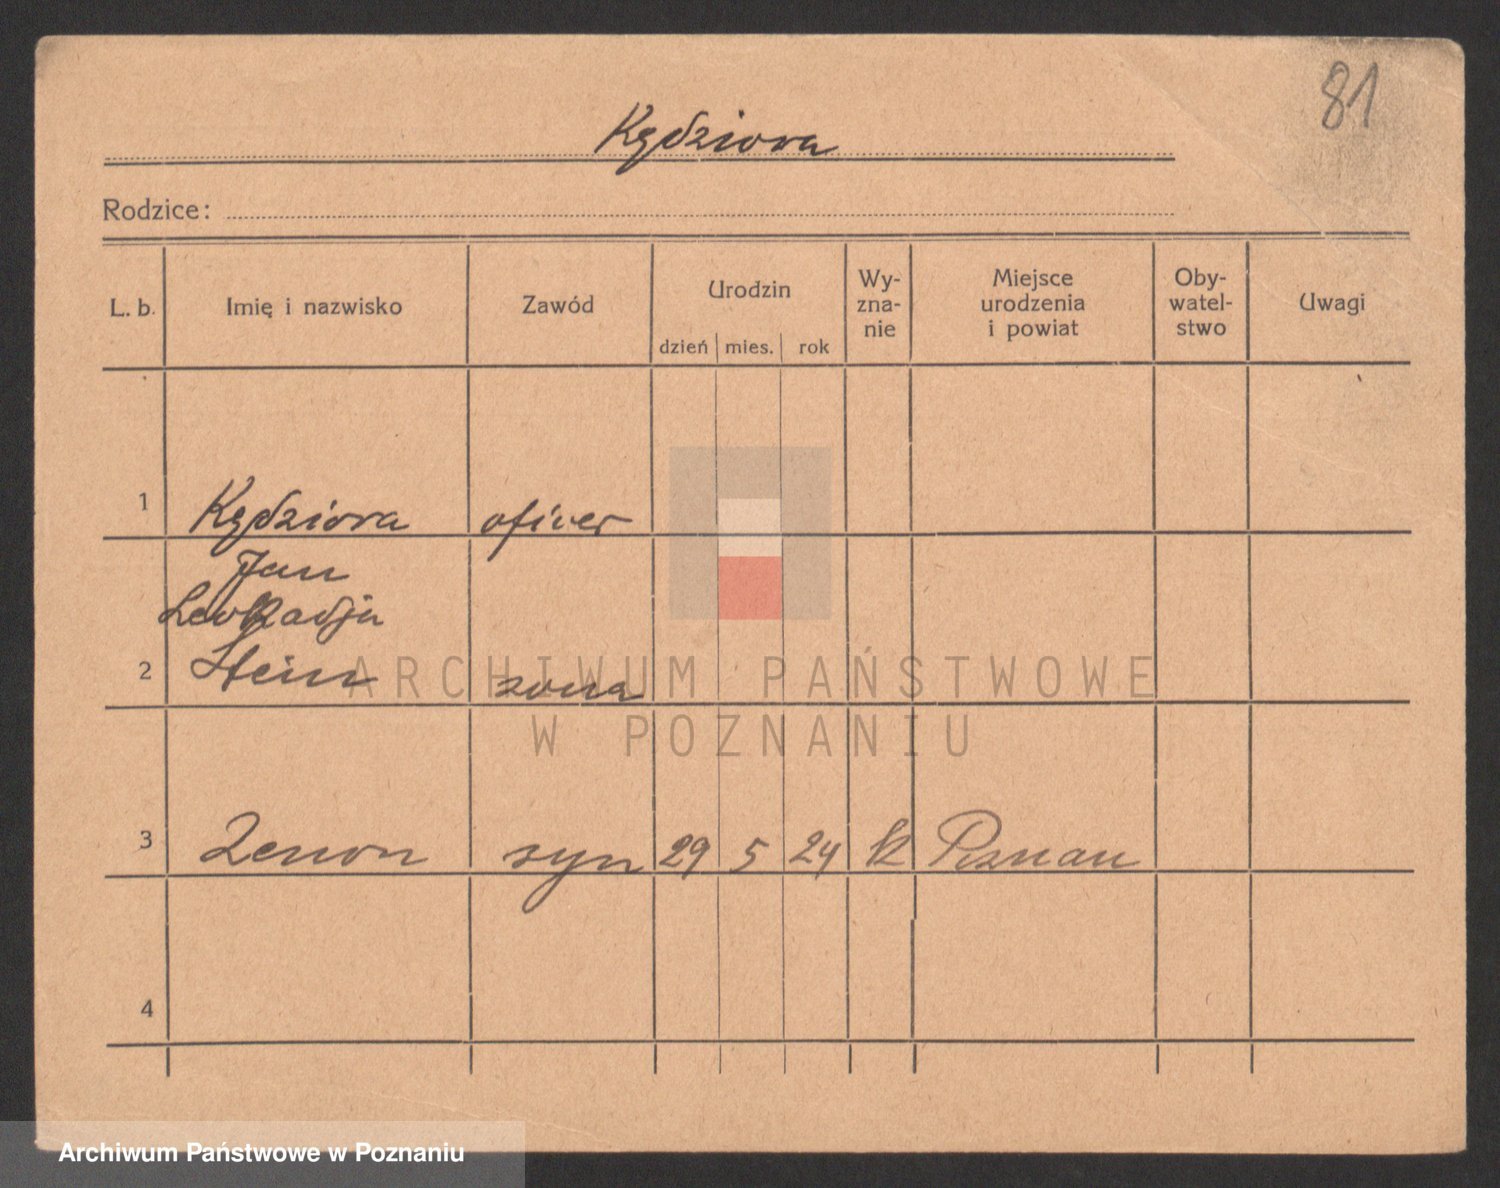 81
Kędziora
Rodzice:
L. b. Imię i nazwisko Zawód Urodzin Wy- Miejsce Oby- Uwagi
zna- urodzenia watel-
nie i powiat stwo
dzień mies. rok
1 Kędziora oficer
Jan
Leokadja
2 Stein żona
ARCHIWUM PAŃSTWOWE
W POZNANIU
3 Zenon syn 29 5 24 k Poznan
4
Archiwum Państwowe w Poznaniu